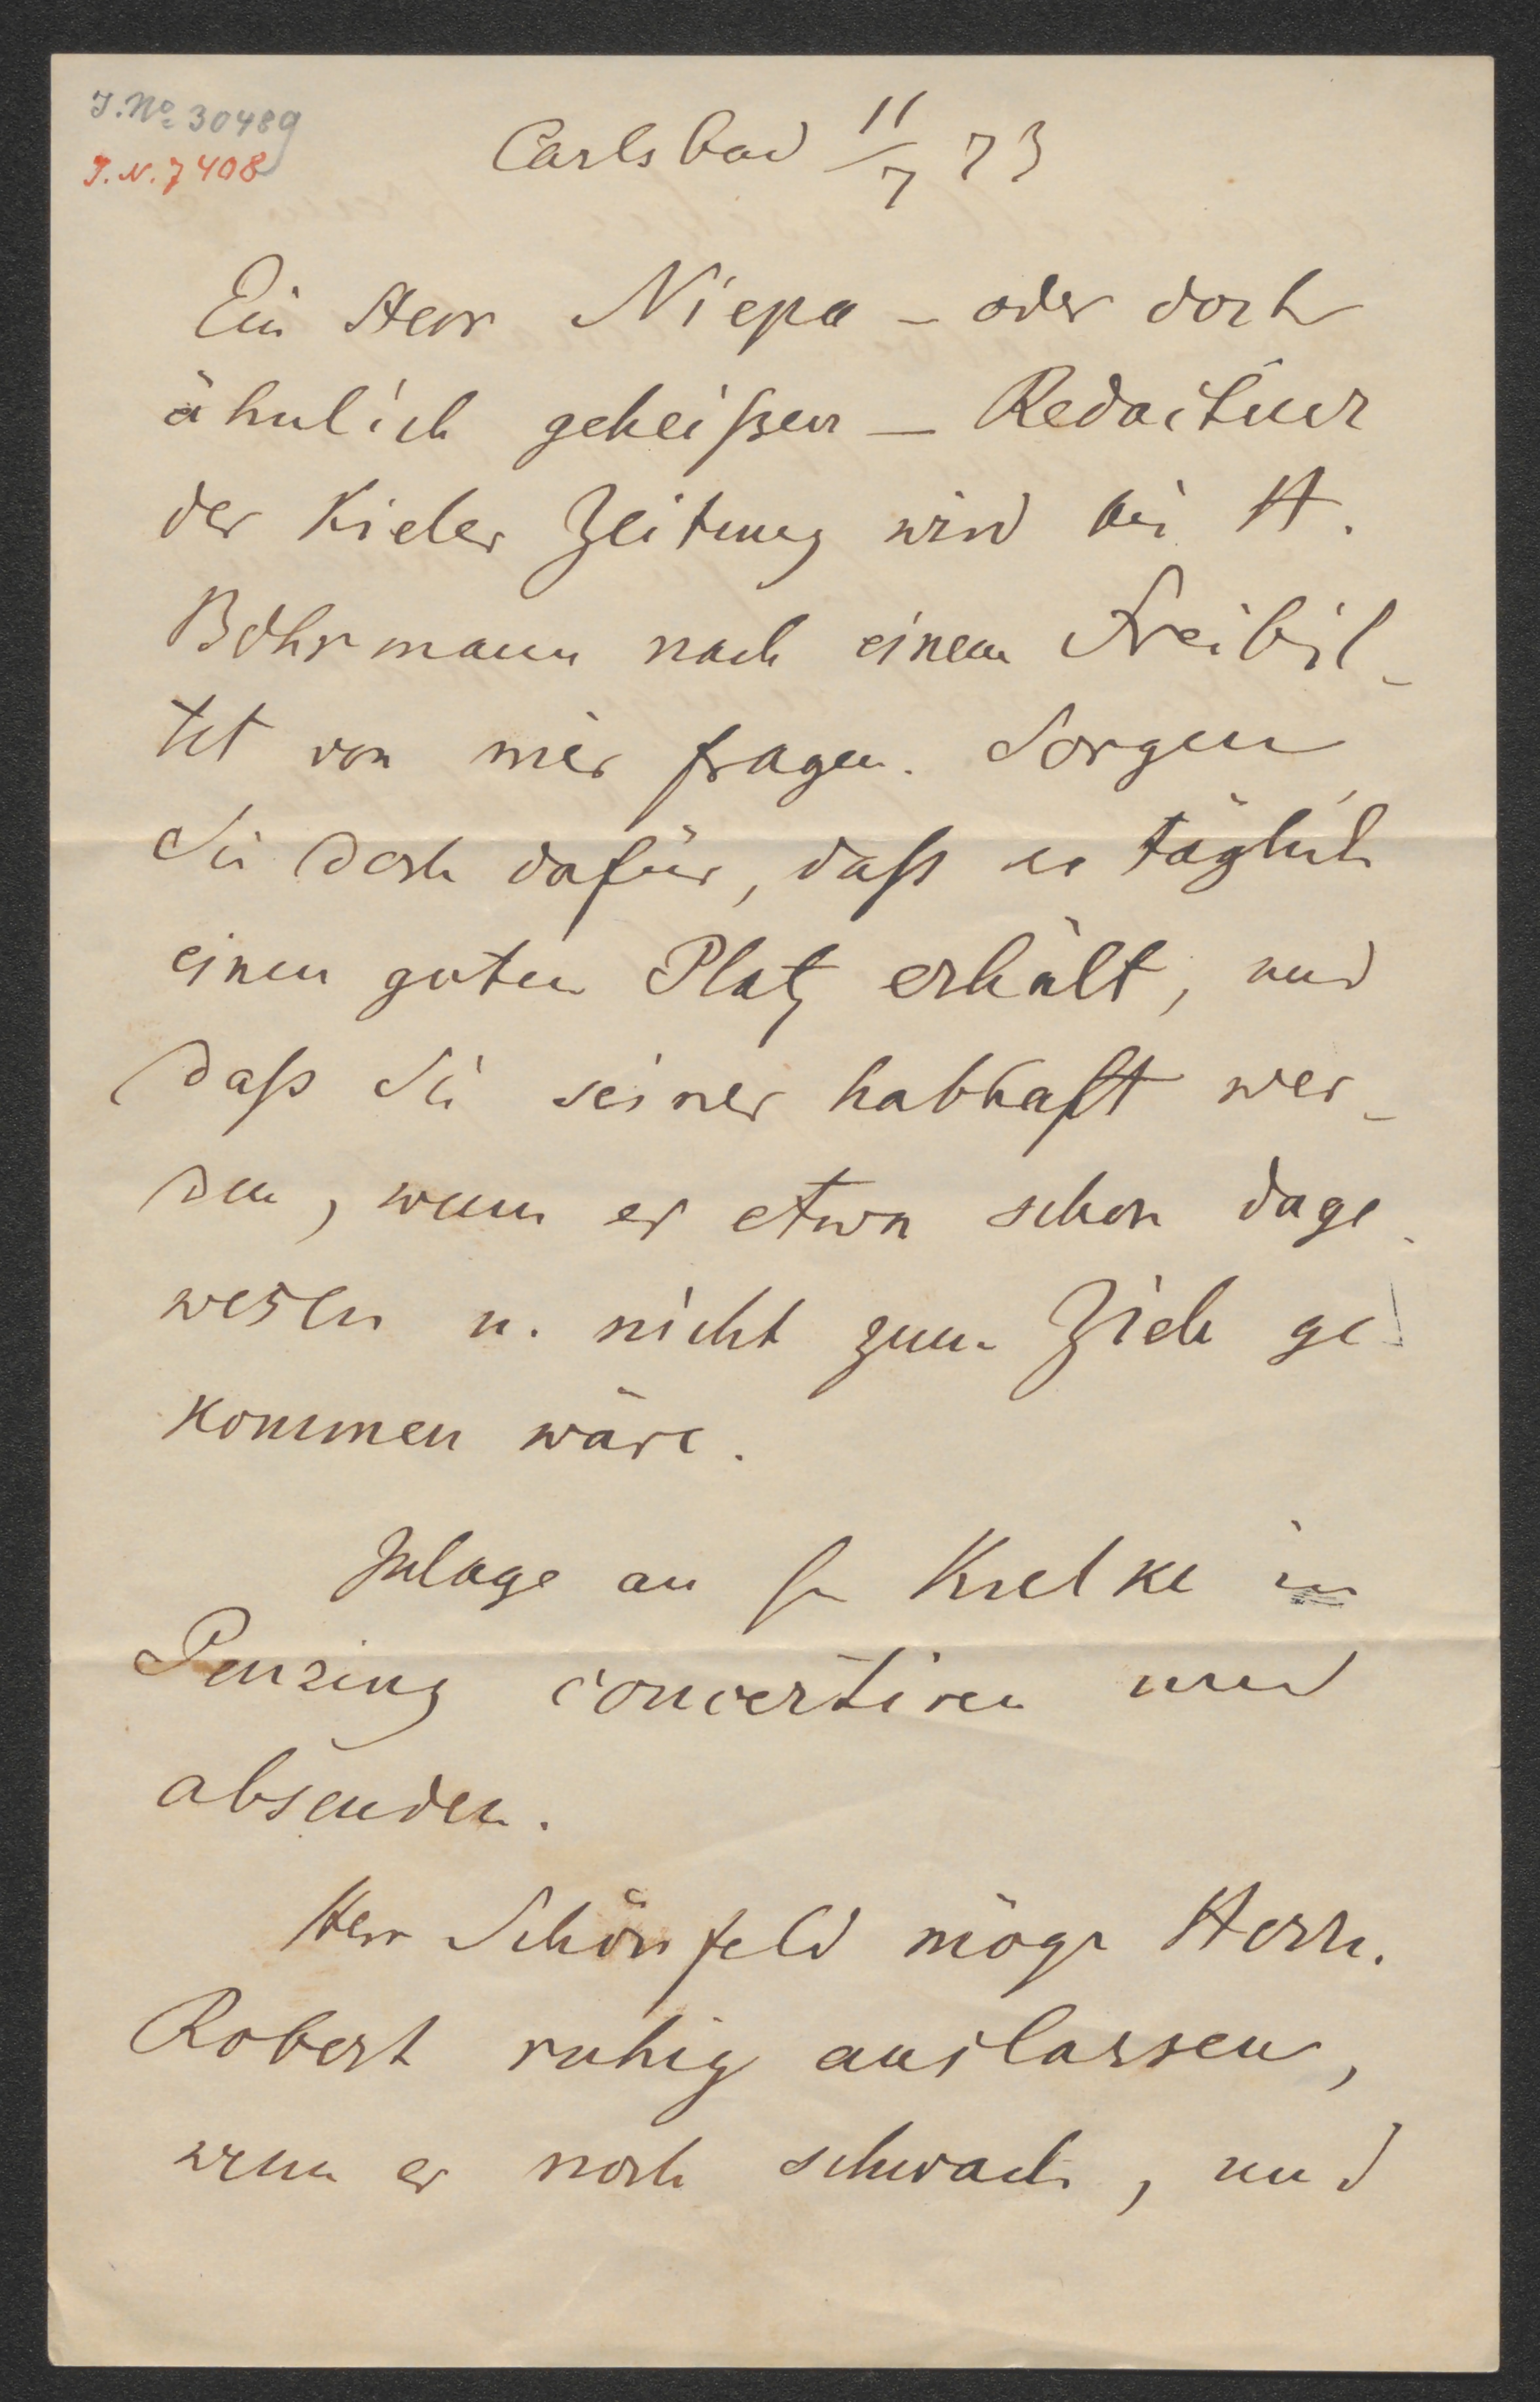 J. No 30489
J.N. 7408
Carlsbad 11/7 73
Ein Herr Niepa – oder doch
ähnlich geheißen – Redacteur
der Kieler Zeitung wird bei H.
Bohrmann nach einem Freibil-
let von mir fragen. Sorgen
Sie doch dafür, daß er täglich
einen guten Platz erhält, und
daß Sie seiner habhaft wer-
den, wenn er etwa schon dage-
wesen u. nicht zum Ziele ge-
kommen wäre.
Inlage an Kielke in
Penzing convertiren und
absenden.
Herr Schönfeld möge Herrn.
Robert ruhig auslassen,
wenn er noch schwach, und